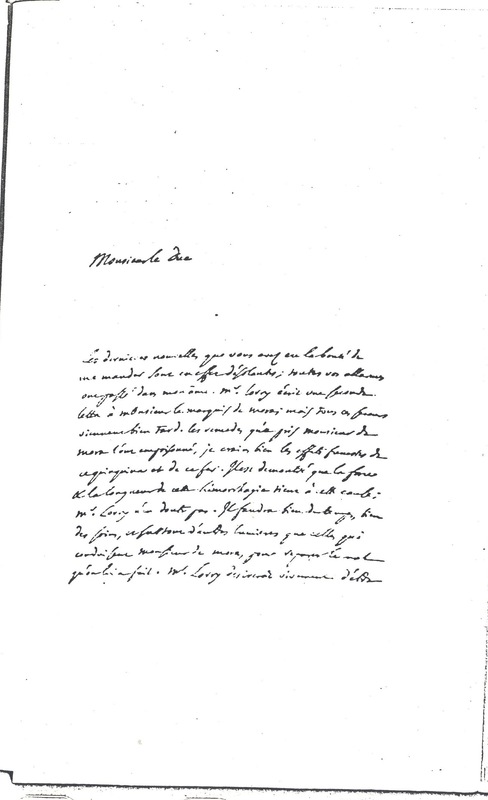 Monsieur le Duc
Les dernieres nouvelles que vous avez eu la bonté de
me mander sont en effet désolantes; toutes vos allarmes
ont passé dans mon âme. Mr. Lorry écrit une seconde
lettre à monsieur le marquis de mora; mais tous ces secours
viennent bien tard. les remedes qu'a pris monsieur de
mora l'ont empoisonné, je crains bien les effets funestes de
ce quinquina et de ce fer. Il est demontré que la force
& la longueur de cette hémorhagie tient à cette cause.
Mr. Lorry n'en doute pas. Il faudra bien du temps, bien
des soins, et surtout d'autres lumieres que celles qui
conduisent monsieur de mora, pour réparer le mal
qu'on lui a fait. Mr. Lorry désireroit vivement d'être